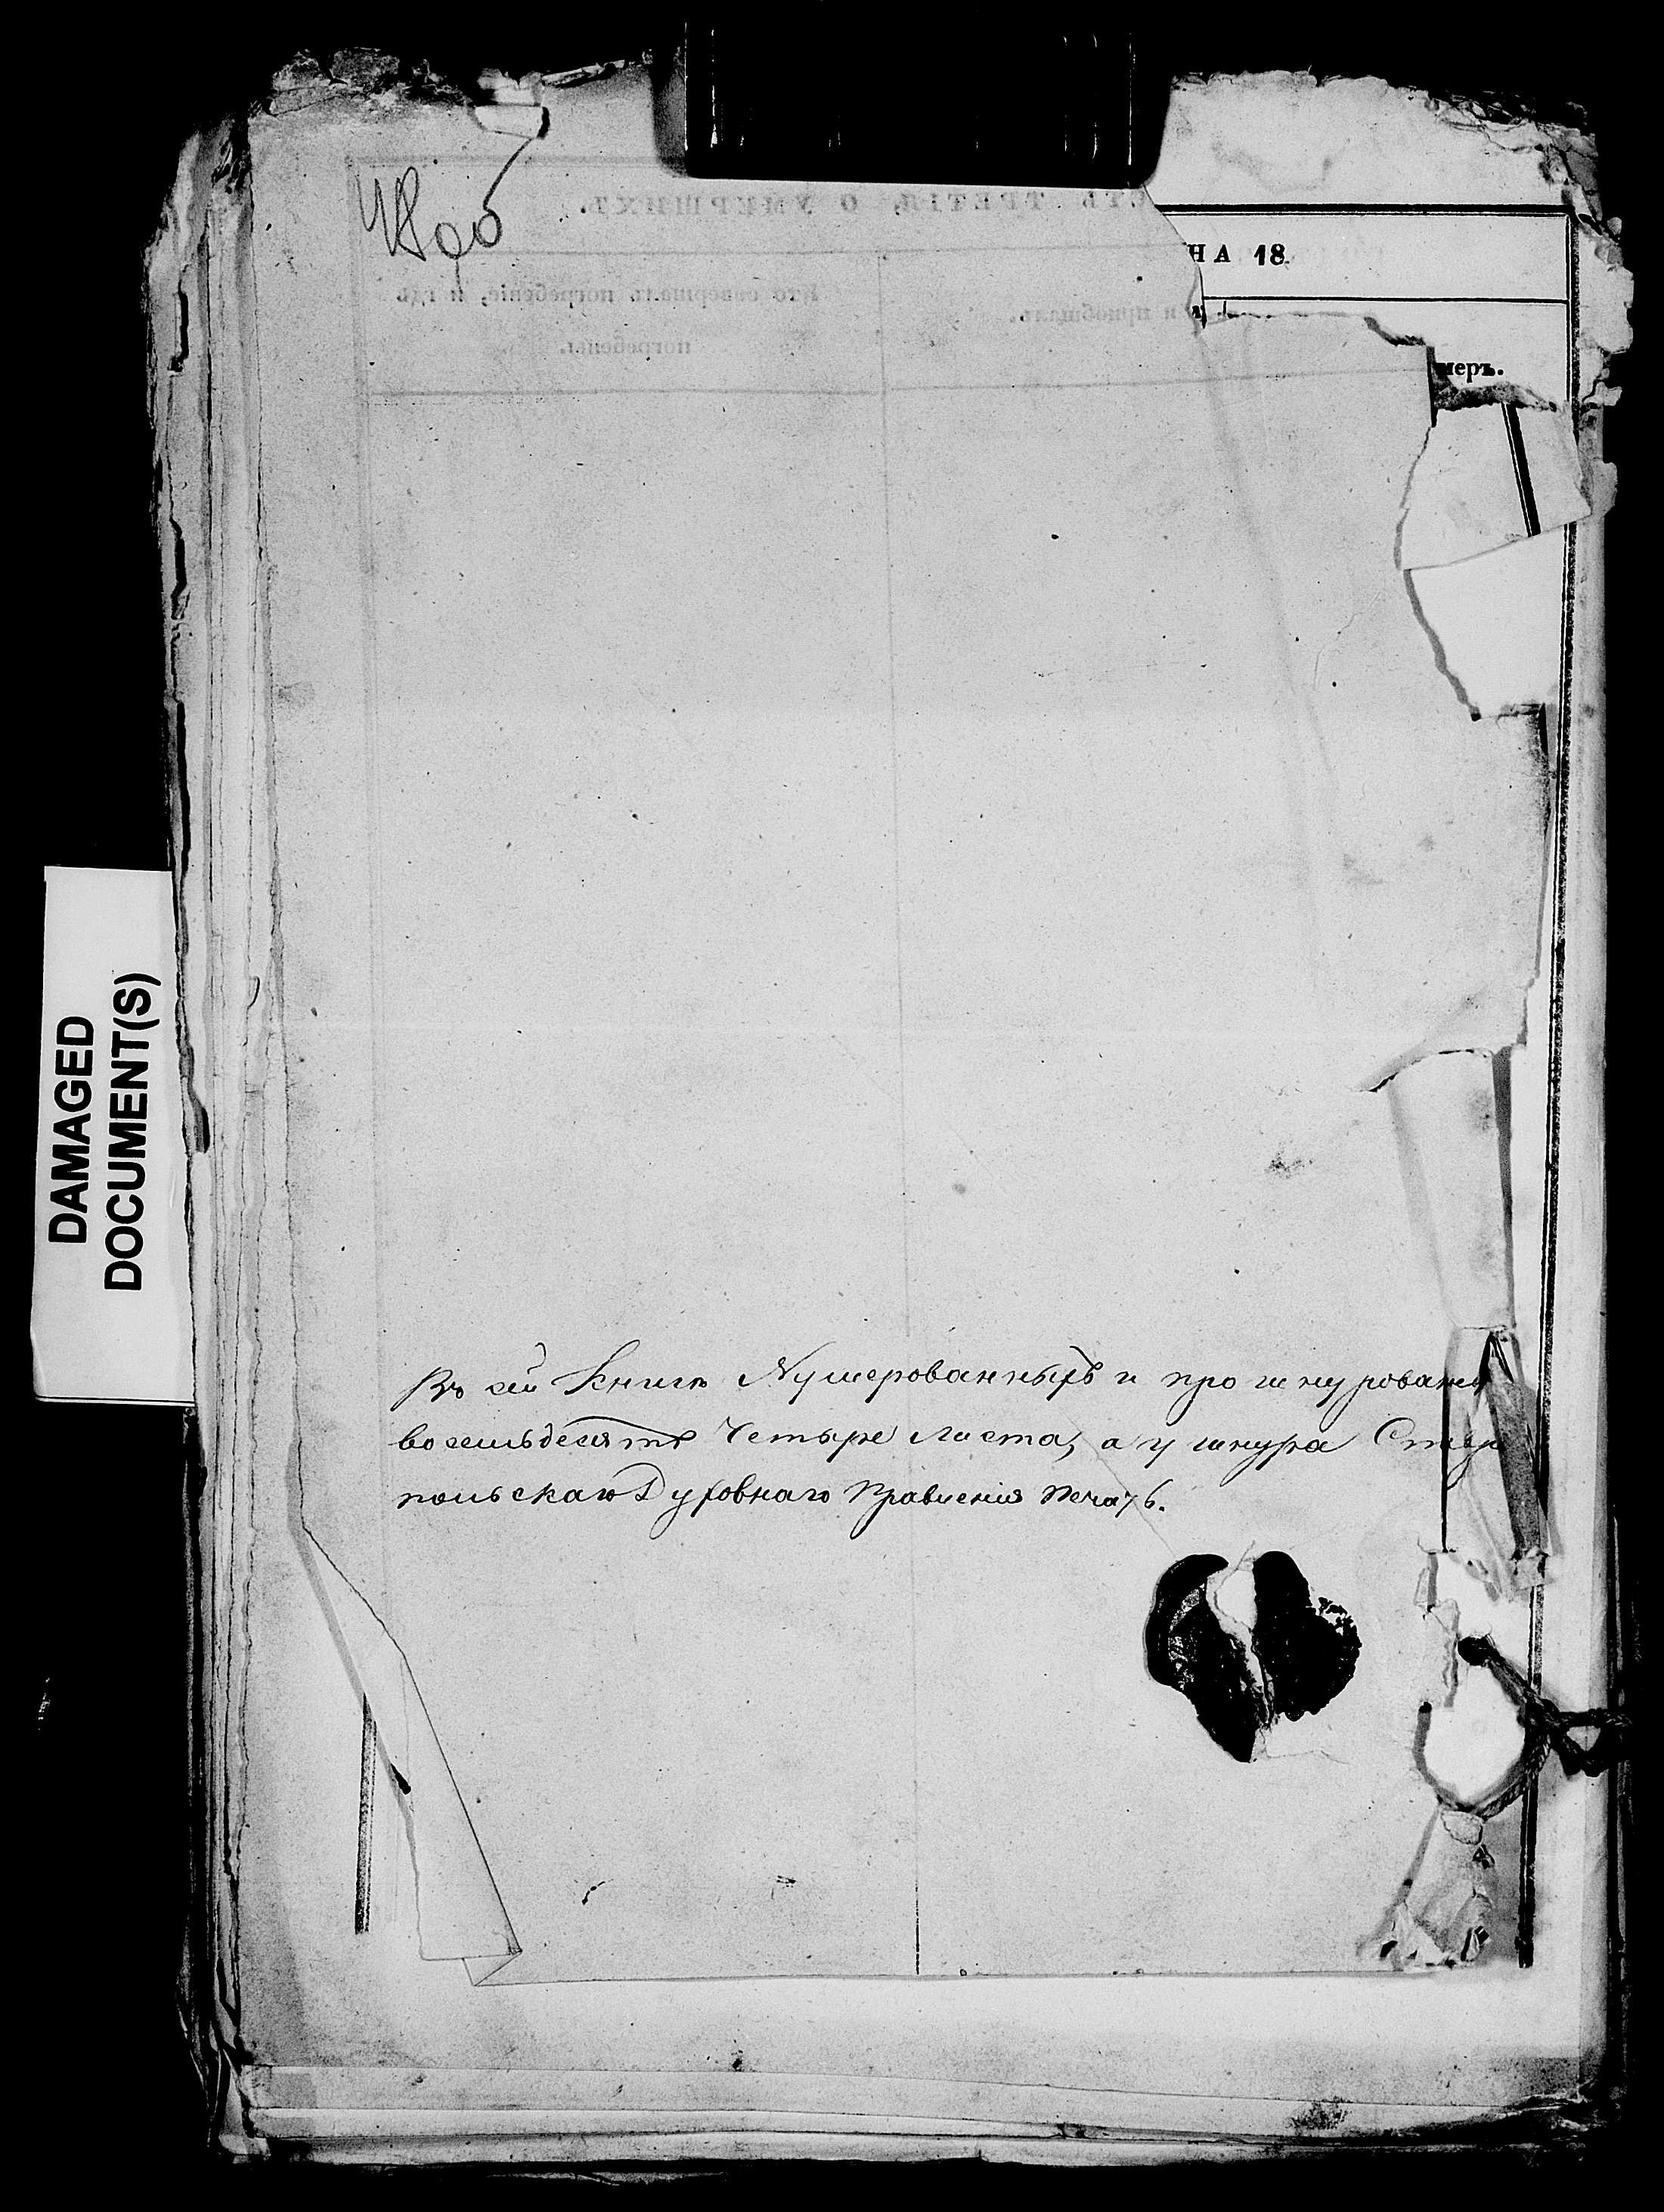 СТЬ ТРЕТІЯ, О УМЕРШИХЪ.
НА 18
Кто совершалъ погребеніе, и гдѣ
погребены.
и приобщалъ.
меръ.
DAMAGED
DOCUMENT(S)
Въ сей Книгѣ Нумерованныхъ и прошнурованы
восемьдесятъ Четыре листа, а у шнура Став
польскаго Духовнаго Правленія печать.